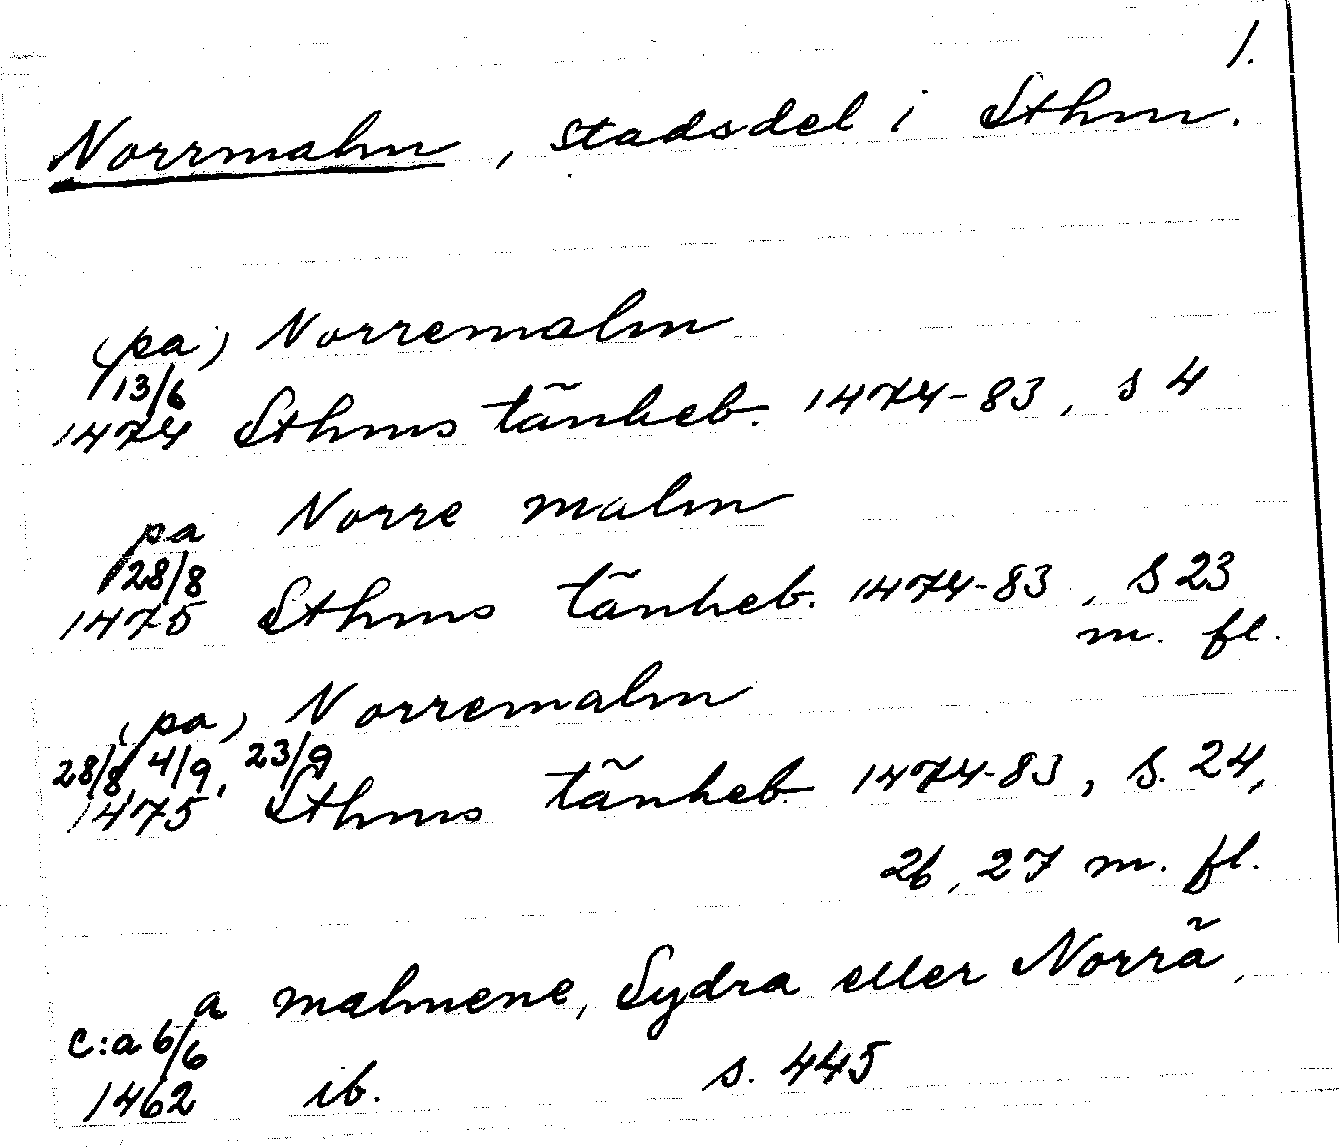 1.
Norrmalm, stadsdel i Sthm.
(pa) Norremalm
13/6
1474 Sthms tänkeb. 1474-83, s 4
pa Norre malm
28/8
1475 Sthms tänkeb. 1474-83, s 23
m. fl.
(pa) Norremalm
28/8, 4/9, 23/9
1475 Sthms tänkeb 1474-83, s. 24,
26, 27 m. fl.
a malmene, Sydra eller Norrä,
c:a 6/6
1462 ib. s. 445